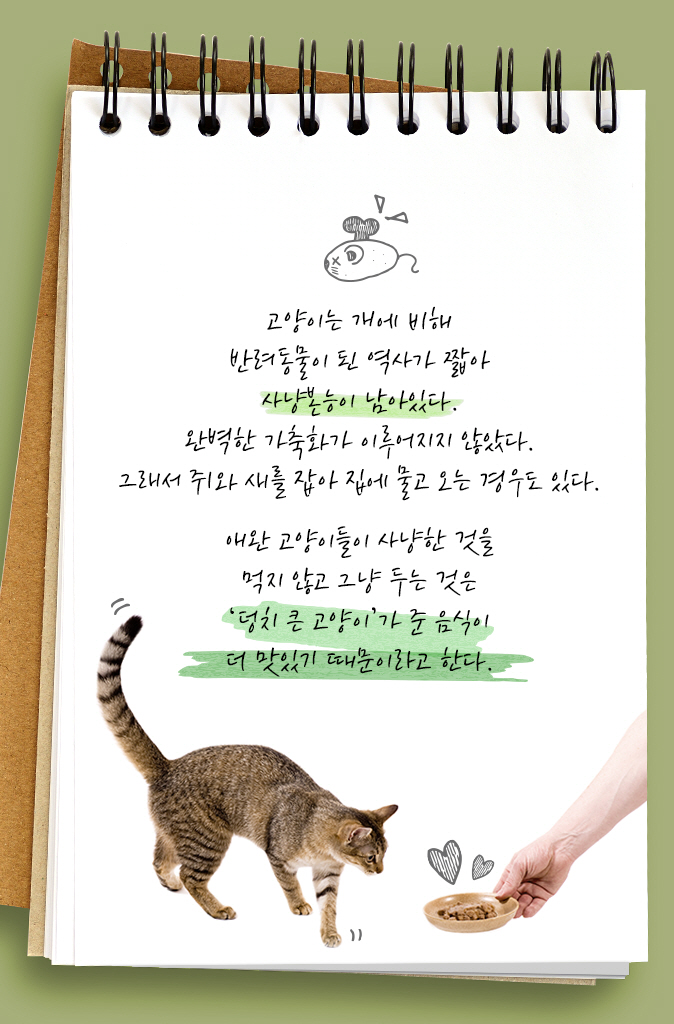 고양이는 개에 비해
반려동물이 된 역사가 짧아
사냥본능이 남아있다.
완벽한 가축화가 이루어지지 않았다.
그래서 쥐와 새를 잡아 집에 물고 오는 경우도 있다.
애완 고양이들이 사냥한 것을
먹지 않고 그냥 두는 것은
‘덩치 큰 고양이’가 준 음식이
더 맛있기 때문이라고 한다.